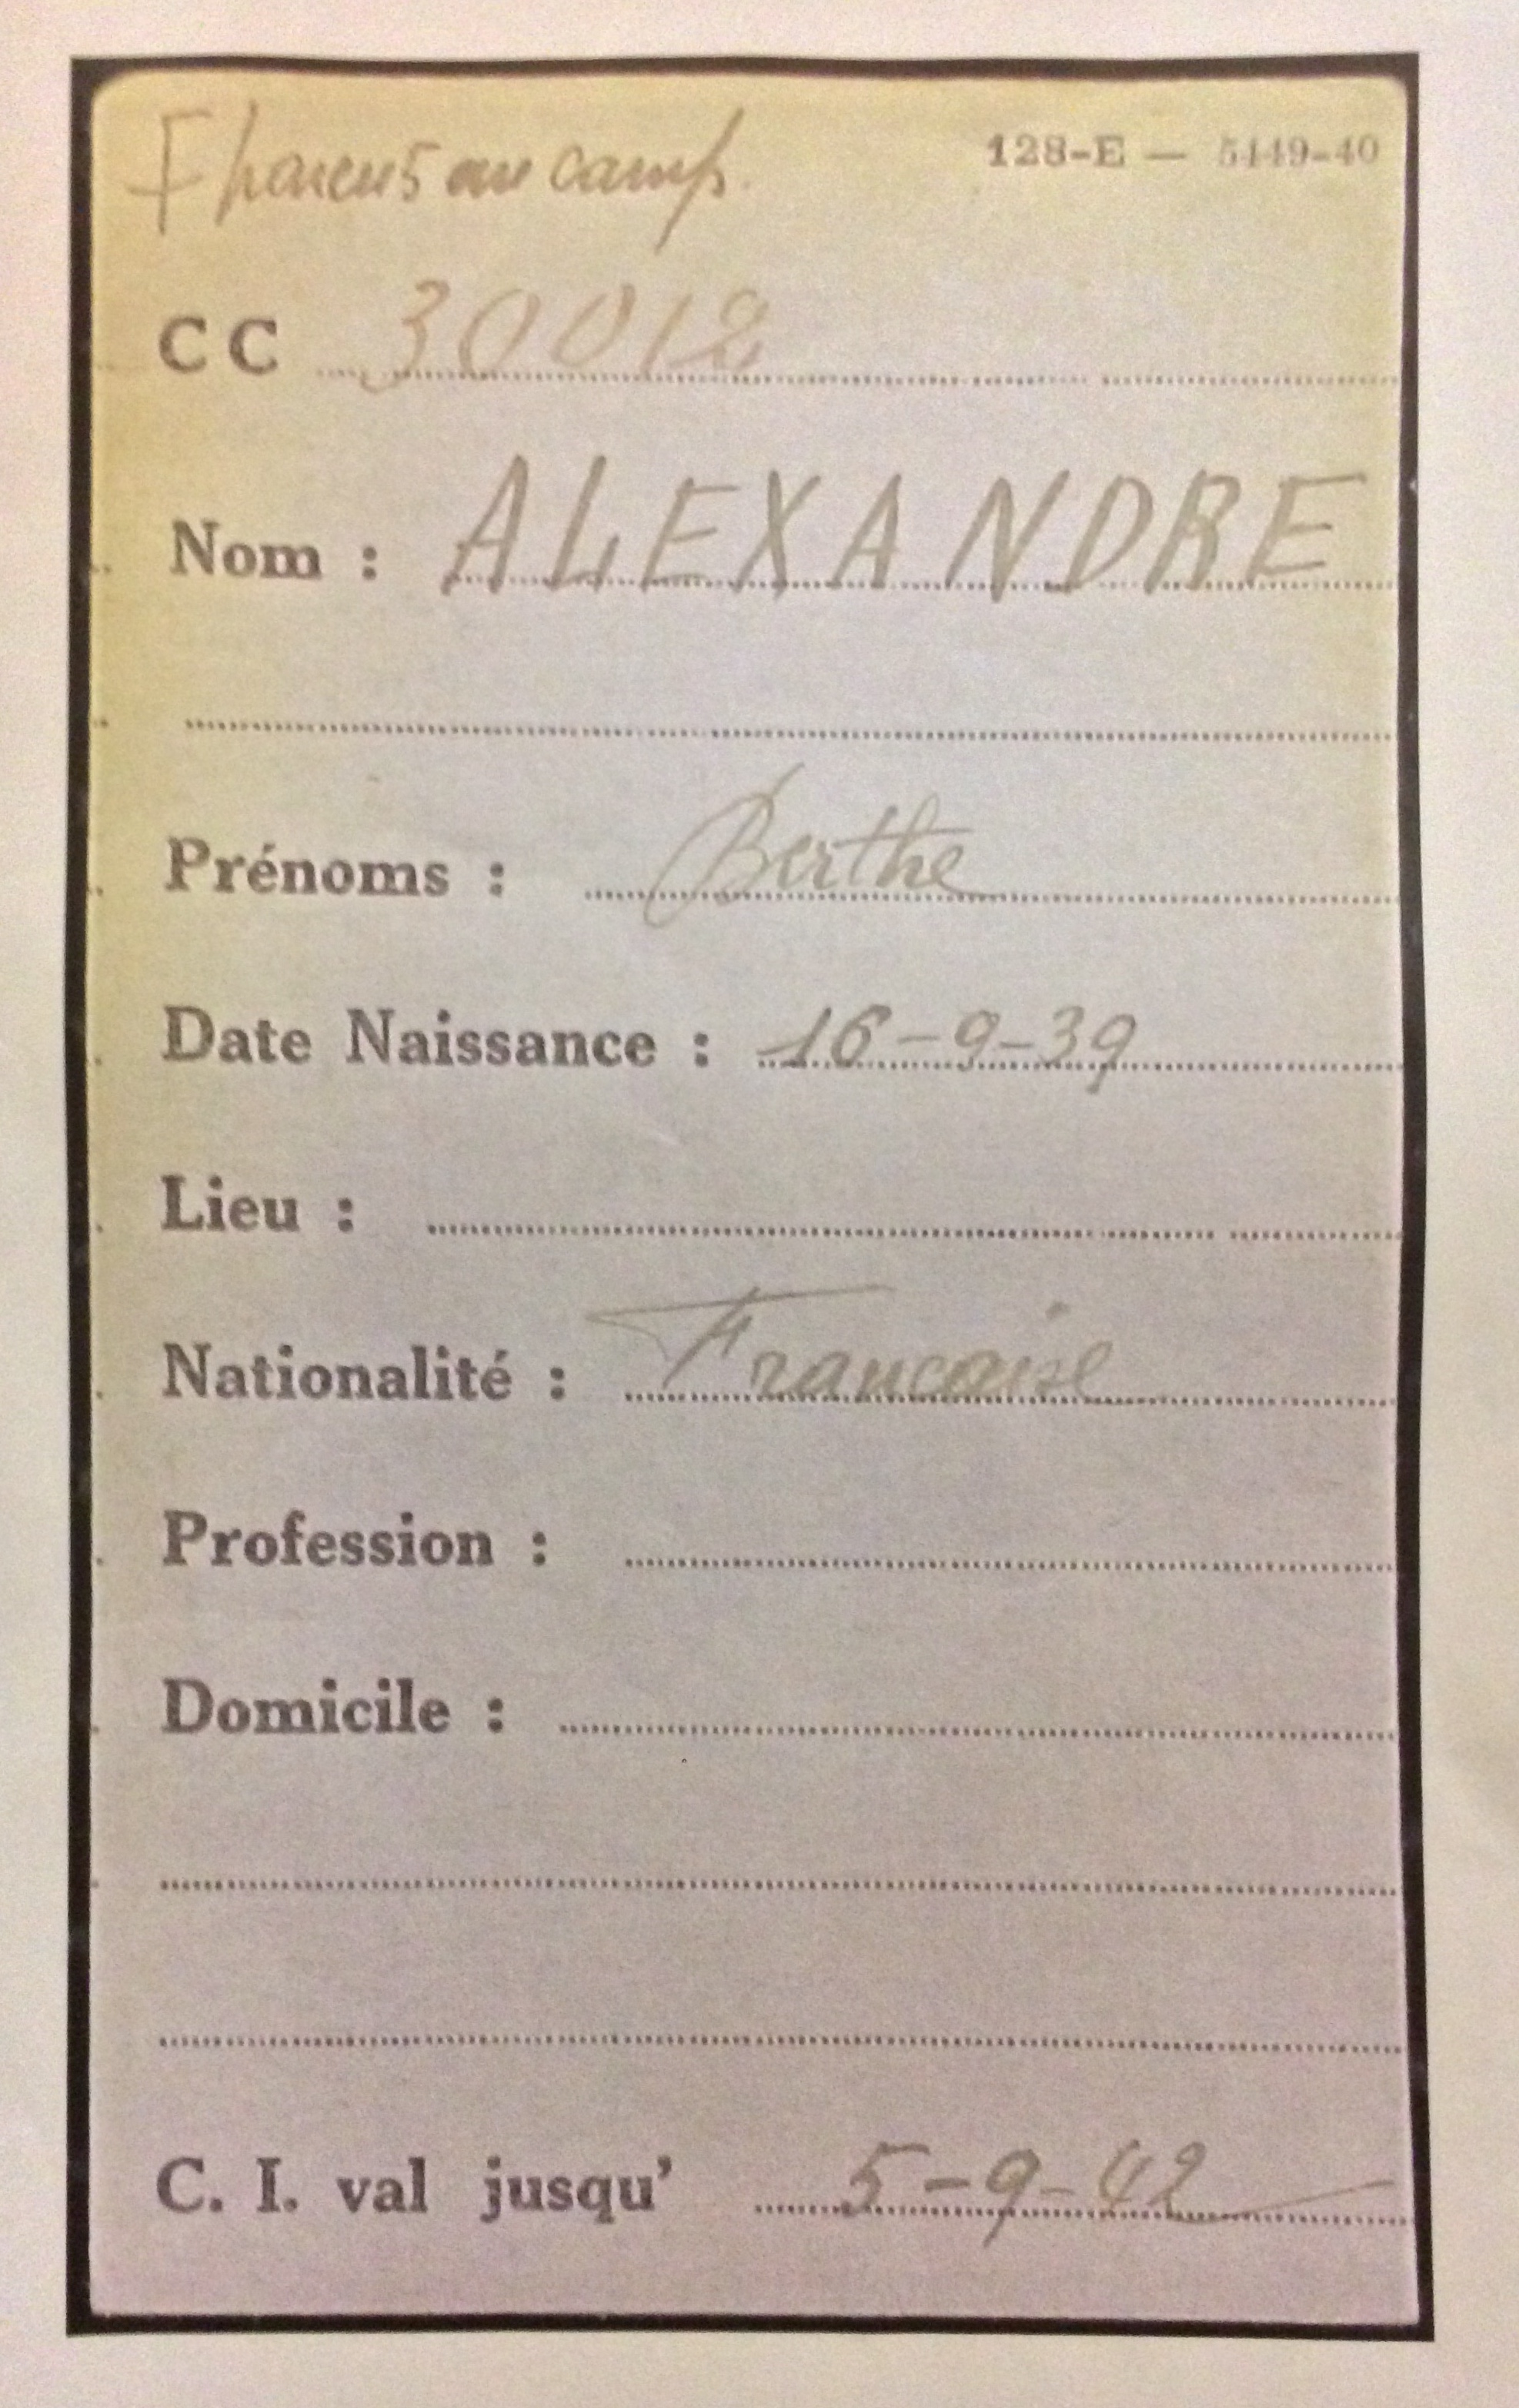 parents au camp.
128-E — 5449-40
CC 30012
Nom : ALEXANDRE
Prénoms : Berthe
Date Naissance : 16-9-39
Lieu :
Nationalité : Francaise
Profession :
Domicile :
C. I. val jusqu' 5-9-42